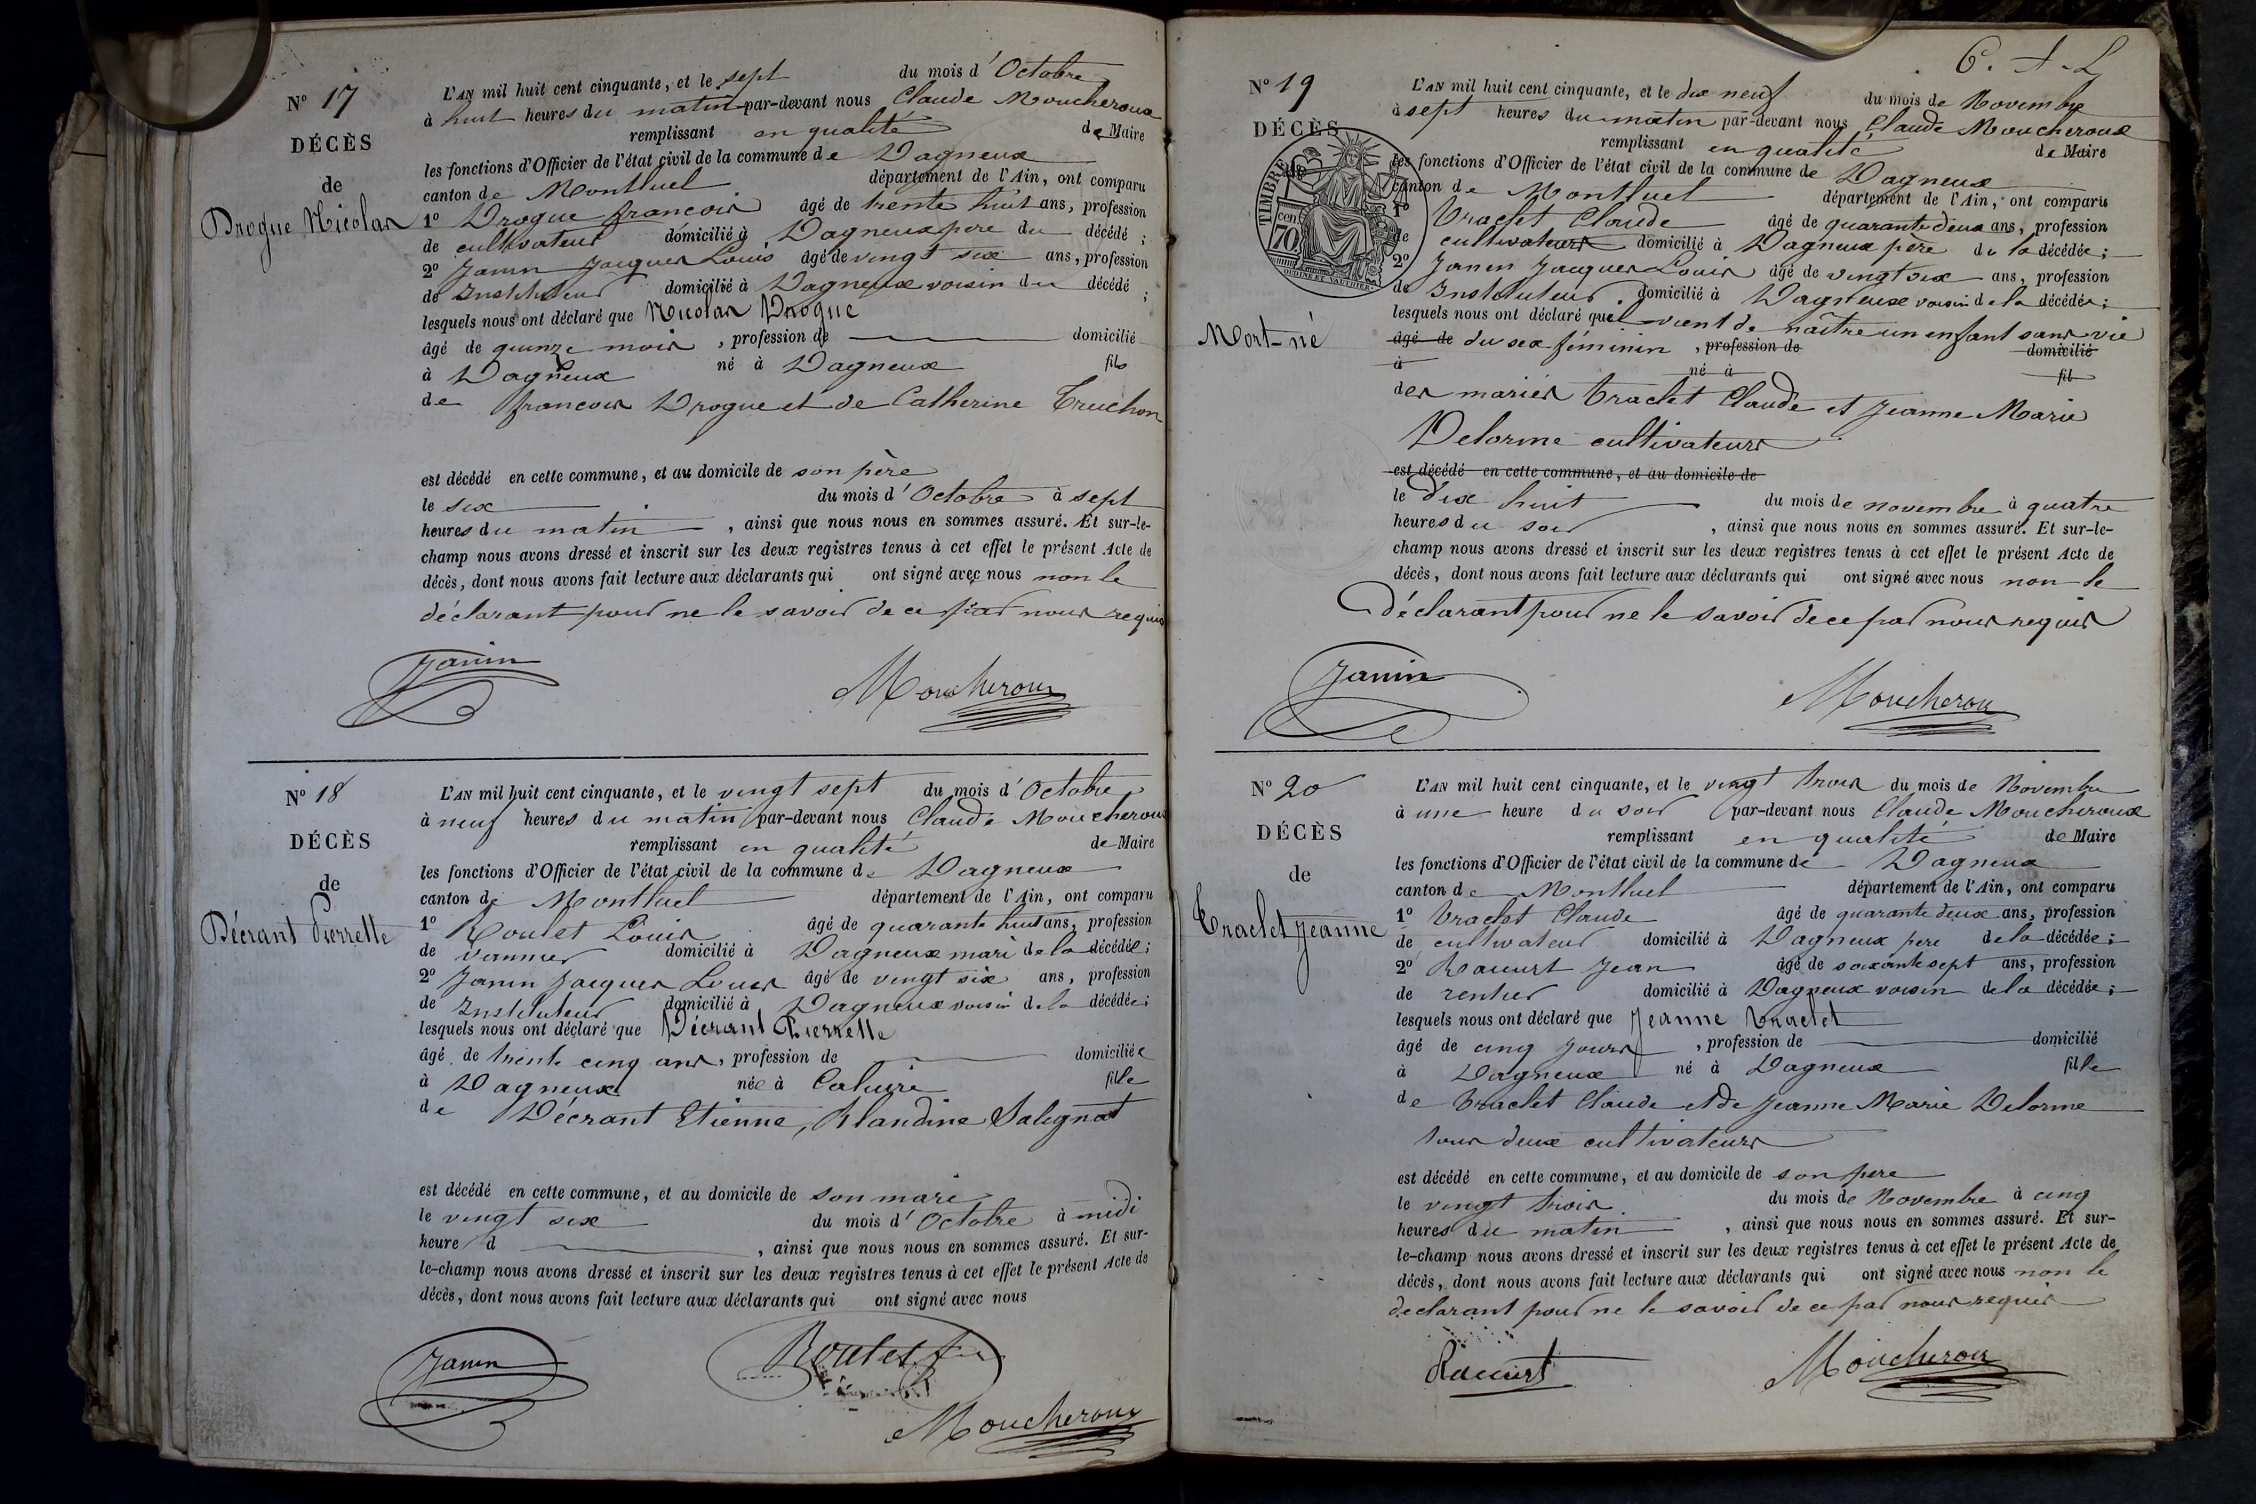 N° 17
DÉCÈS
de
Drogue Nicolas
L'AN mil huit cent cinquante, et le sept du mois d'Octobre
à huit heures du matin par-devant nous Claude Moucheroux
remplissant en qualité de Maire
les fonctions d'Officier de l'état civil de la commune de Dagneux
canton de Montluel département de l'Ain, ont comparu
1° Drogue francois âgé de trente huit ans, profession
de cultivateur domicilié à Dagneux pere du décédé ;
2° Janin Jacques Louis âgé de vingt six ans, profession
de Instituteur domicilié à Dagneux voisin du décédé ;
lesquels nous ont déclaré que Nicolas Drogue
âgé de quinze mois, profession de domicilié
à Dagneux né à Dagneux fils
de francois Drogue et de Catherine Truchon
est décédé en cette commune, et au domicile de son père
le six du mois d'Octobre à sept
heures du matin, ainsi que nous nous en sommes assuré. Et sur-le-
champ nous avons dressé et inscrit sur les deux registres tenus à cet effet le présent Acte de
décès, dont nous avons fait lecture aux déclarants qui ont signé avec nous non le
déclarant pour ne le savoir de ce par nous requis
Janin
Moucheroux
N° 18
DÉCÈS
de
Décrant Pierrette
L'AN mil huit cent cinquante, et le vingt sept du mois d'Octobre
à neuf heures du matin par-devant nous Claude Moucheroux
remplissant en qualité de Maire
les fonctions d'Officier de l'état civil de la commune de Dagneux
canton de Montluel département de l'Ain, ont comparu
1° Roulet Louis âgé de quarante huit ans, profession
de vannier domicilié à Dagneux mari de la décédée ;
2° Janin Jacques Louis âgé de vingt six ans, profession
de Instituteur domicilié à Dagneux voisin de la décédée ;
lesquels nous ont déclaré que Décrant Pierrette
âgé de trente cinq ans, profession de domiciliée
à Dagneux née à Caluire fille
de Décrant Etienne, Blandine Salignat
est décédé en cette commune, et au domicile de son mari
le vingt six du mois d'Octobre à midi
heure d , ainsi que nous nous en sommes assuré. Et sur-
le-champ nous avons dressé et inscrit sur les deux registres tenus à cet effet le présent Acte de
décès, dont nous avons fait lecture aux déclarants qui ont signé avec nous
Janin
Roulet
Moucheroux
C. A. L
N° 19
DÉCÈS
TIMBRE
70 cen.
OUDINÉ ET VAUTHIER
Mort-né
L'AN mil huit cent cinquante, et le dix neuf du mois de Novembre
à sept heures du matin par-devant nous Claude Moucheroux
remplissant en qualité de Maire
les fonctions d'Officier de l'état civil de la commune de Dagneux
canton de Montluel département de l'Ain, ont comparu
1° Traclet Claude âgé de quarante deux ans, profession
de cultivateur domicilié à Dagneux père de la décédée ;
2° Janin Jacques Louis âgé de vingt six ans, profession
de Instituteur domicilié à Dagneux voisin de la décédée ;
lesquels nous ont déclaré quel vient de naître un enfant sans vie
âgé de du sex féminin, profession de domicilié
à né à fil
des mariés Traclet Claude et Jeanne Marie
Delorme cultivateurs
est décédé en cette commune, et au domicile de
le dix huit du mois de novembre à quatre
heures du soir, ainsi que nous nous en sommes assuré. Et sur-le-
champ nous avons dressé et inscrit sur les deux registres tenus à cet effet le présent Acte de
décès, dont nous avons fait lecture aux déclarants qui ont signé avec nous non le
déclarant pour ne le savoir de ce par nous requis
Janin
Moucheroux
N° 20
DÉCÈS
de
Traclet Jeanne
L'AN mil huit cent cinquante, et le vingt trois du mois de Novembre
à une heure du soir par-devant nous Claude Moucheroux
remplissant en qualité de Maire
les fonctions d'Officier de l'état civil de la commune de Dagneux
canton de Montluel département de l'Ain, ont comparu
1° Traclet Claude âgé de quarante deux ans, profession
de cultivateur domicilié à Dagneux pere de la décédée ;
2° Racurt Jean âgé de soixante sept ans, profession
de rentier domicilié à Dagneux voisin de la décédée ;
lesquels nous ont déclaré que Jeanne Traclet
âgé de cinq jours, profession de domicilié
à Dagneux né à Dagneux fille
de Traclet Claude et de Jeanne Marie Delorme
tous deux cultivateurs
est décédé en cette commune, et au domicile de son pere
le vingt trois du mois de Novembre à cinq
heures du matin, ainsi que nous nous en sommes assuré. Et sur-
le-champ nous avons dressé et inscrit sur les deux registres tenus à cet effet le présent Acte de
décès, dont nous avons fait lecture aux déclarants qui ont signé avec nous non le
declarant pour ne le savoir de ce par nous requis
Racurt
Moucheroux